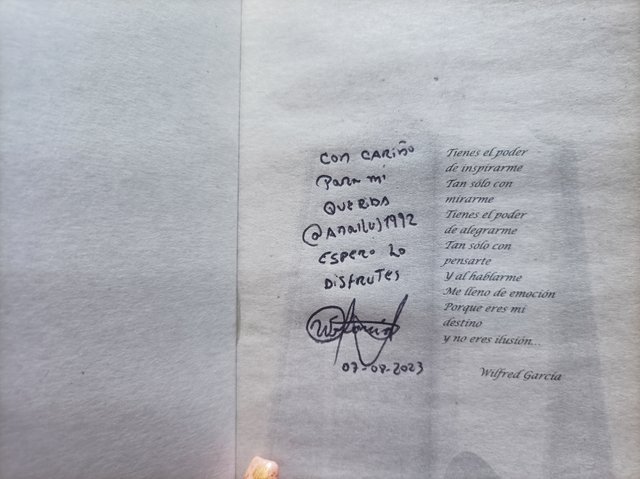 CON CARIÑO
PARA MI
QUERIDA
@Anailuj1992
ESPERO LO
DISFRUTES
07-08-2023
Tienes el poder
de inspirarme
Tan sólo con
mirarme
Tienes el poder
de alegrarme
Tan sólo con
pensarte
Y al hablarme
Me lleno de emoción
Porque eres mi
destino
y no eres ilusión...
Wilfred García